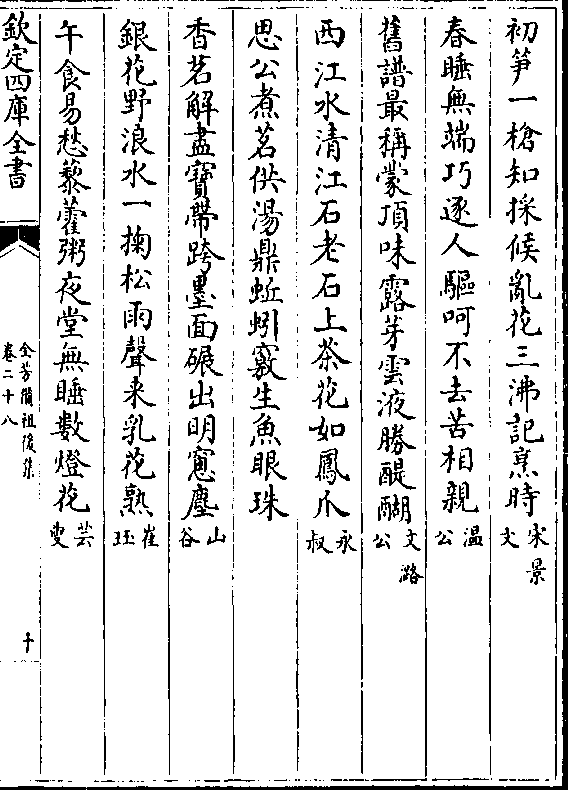 初笋一槍知採候亂花三沸記烹時宋景文
春睡無端巧逐人驅呵不去苦相親温公
舊譜最稱蒙頂味露芽雲液勝醍醐文潞公
西江水清江石老石上茶花如鳳爪永叔
思公煮茗供湯鼎蚯蚓竅生魚眼珠
香茗解盡寶帶跨墨面碾出明窻塵山谷
銀花野浪水一掬松雨聲来乳花熟崔珏
午食易愁藜藿粥夜堂無睡數燈花芸叟
欽定四庫全書
全芳備祖後集
卷二十八
十